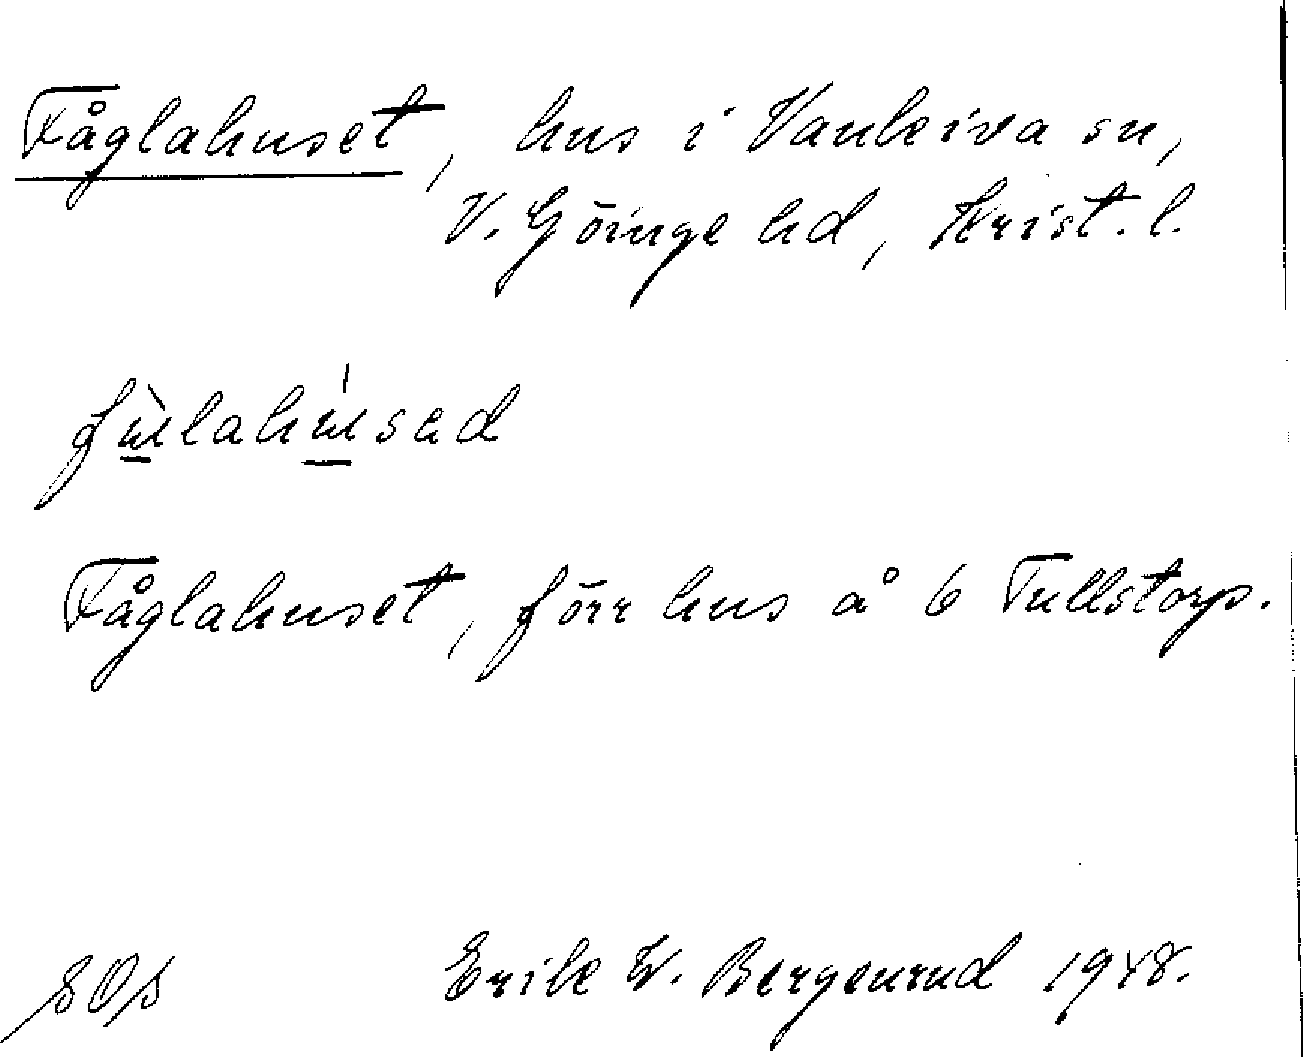 Fåglahuset, hus i Vankiva sn,
V. Göinge hd, Krist. l.
fùlahúsad
Fåglahuset, förr hus å 6 Tullstorp.
SOS Erik W. Bergenrud 1948.